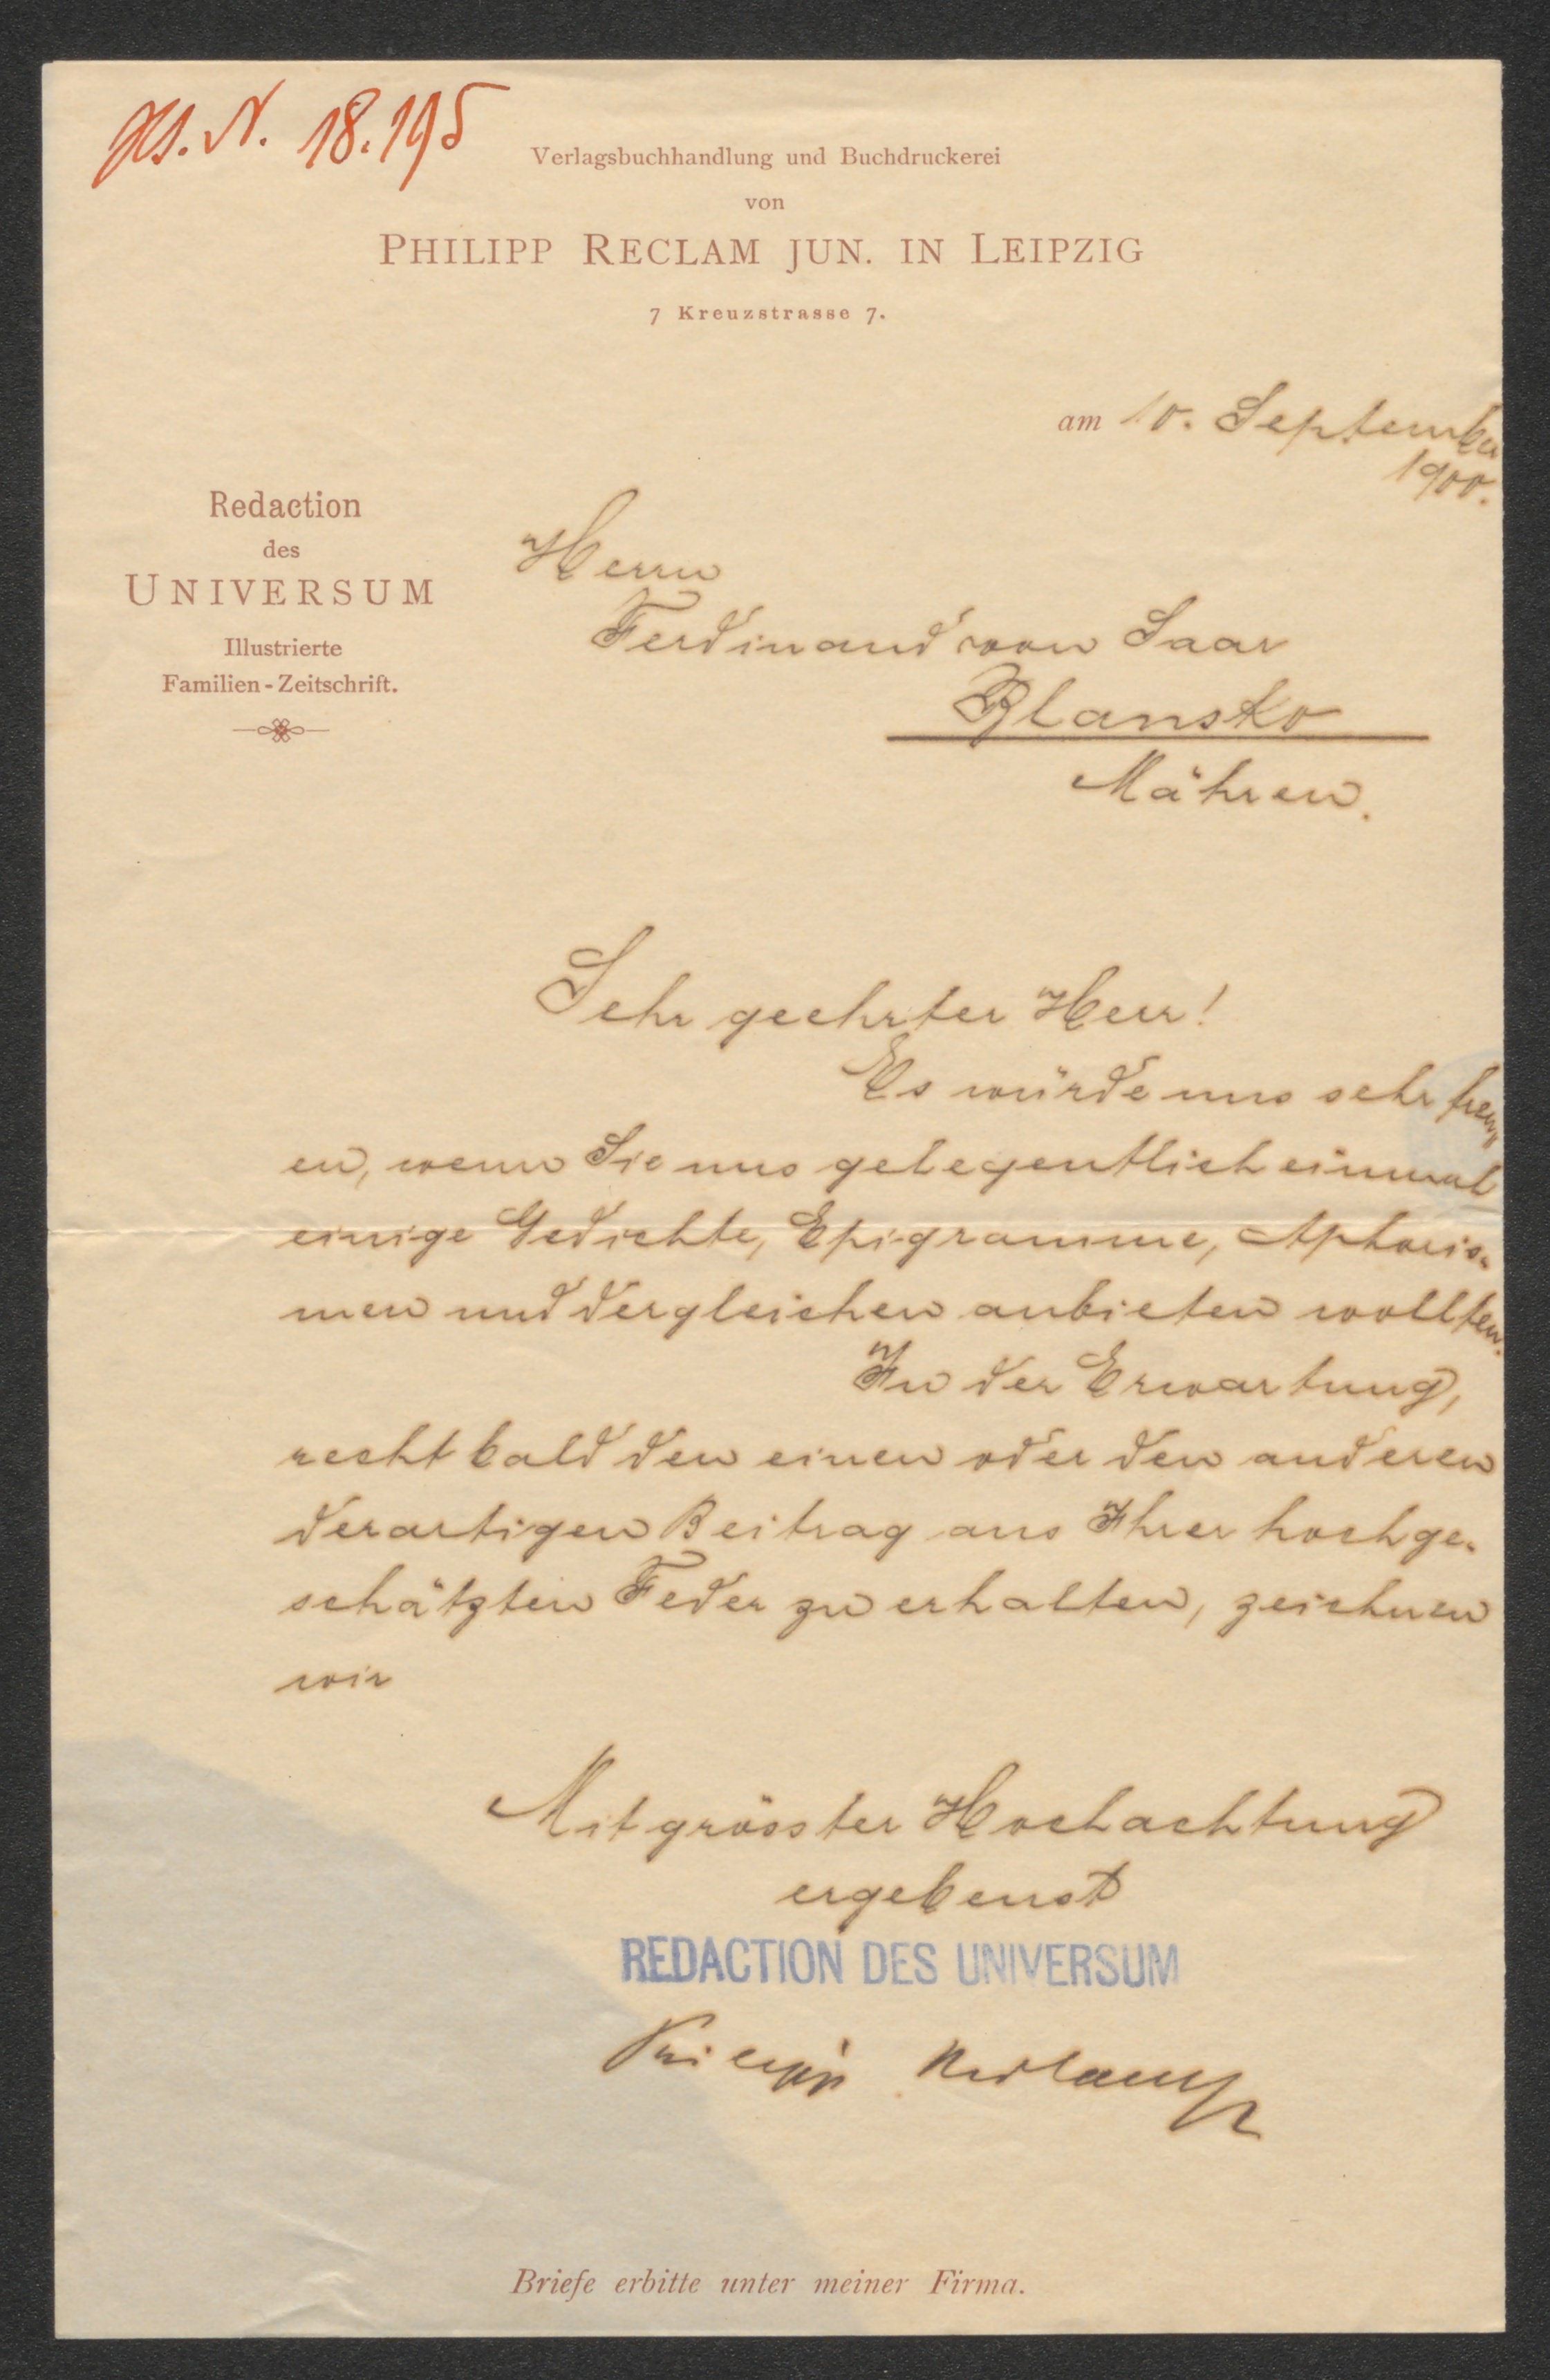 Hs. N. 18.195
Verlagsbuchhandlung und Buchdruckerei
von
PHILIPP RECLAM JUN. IN LEIPZIG
7 Kreuzstrasse 7.
am 10. September
1900.
Redaction
des
UNIVERSUM
Illustrierte
Familien-Zeitschrift.
Herrn
Ferdinand von Saar
Blansko
Mähren.
Sehr geehrter Herr!
Es würde uns sehr freu„
en, wenn Sie uns gelegentlich einmal
einige Gedichte, Epigramme, Aphoris„
men und dergleichen anbieten wollten.
In der Erwartung,
recht bald den einen oder den anderen
derartigen Beitrag aus Ihrer hochge„
schätzten Feder zu erhalten, zeichnen
wir
Mit grösster Hochachtung
ergebenst
REDACTION DES UNIVERSUM
Philipp Reclam jr
Briefe erbitte unter meiner Firma.